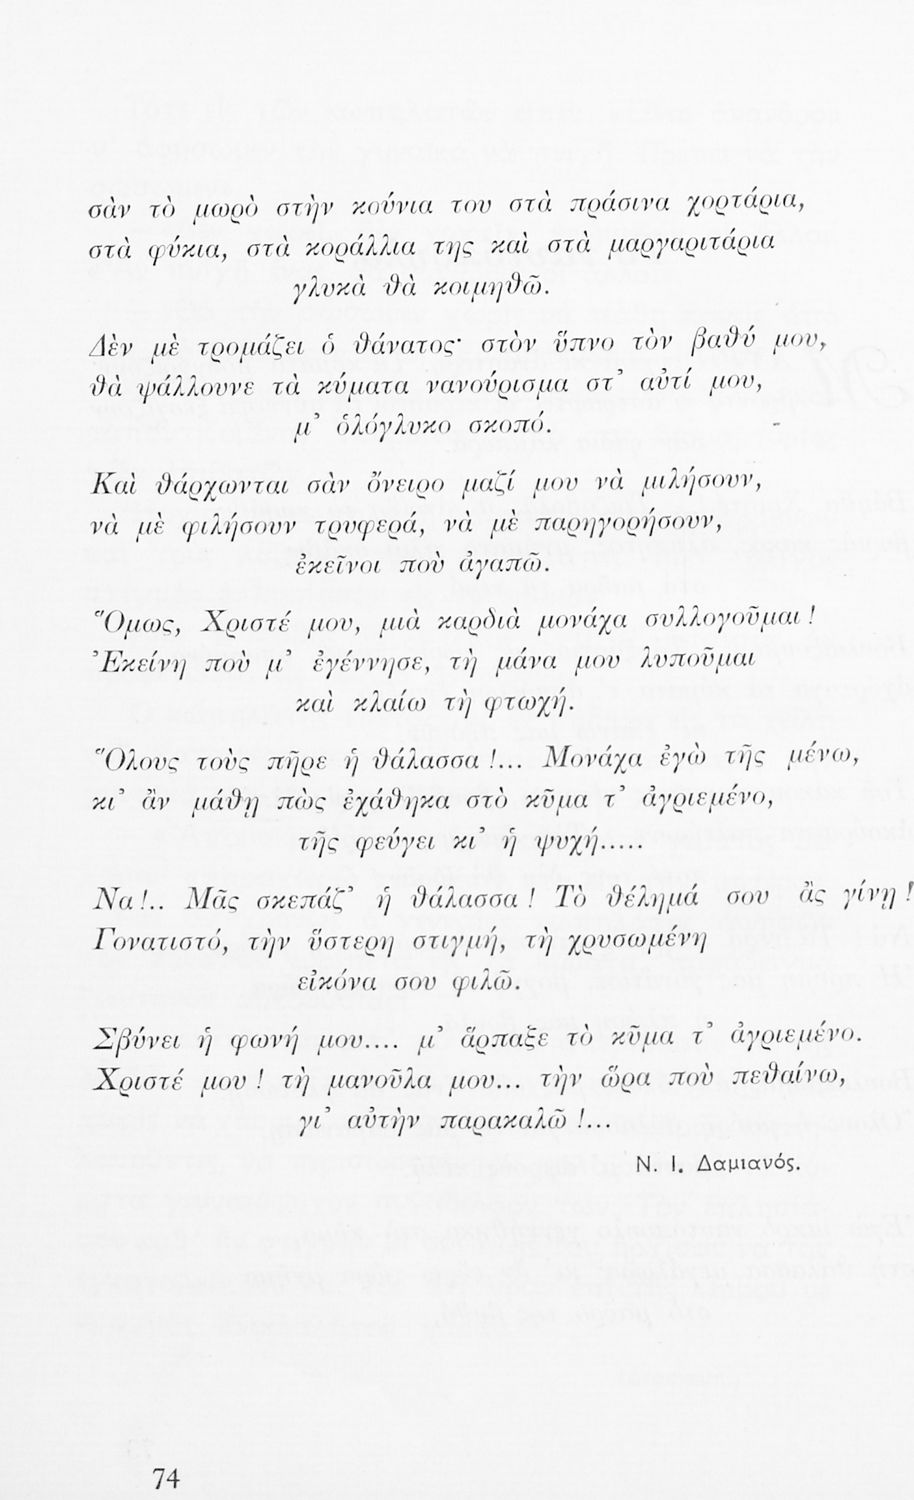 σὰν τὸ μωρὸ στὴν κούνια του στὰ πράσινα χορτάρια,
στὰ φύκια, στὰ κοράλλια της καὶ στὰ μαργαριτάρια
γλυκὰ θὰ κοιμηθῶ.
Δὲν μὲ τρομάζει ὁ θάνατος· στὸν ὕπνο τὸν βαθύ μου,
θὰ ψάλλουνε τὰ κύματα νανούρισμα στ᾽ αὐτί μου,
μ᾽ ὁλόγλυκο σκοπό.
Καὶ θάρχωνται σὰν ὄνειρο μαζί μου νὰ μιλήσουν,
νὰ μὲ φιλήσουν τρυφερά, νὰ μὲ παρηγορήσουν,
ἐκεῖνοι ποὺ ἀγαπῶ.
Ὅμως, Χριστέ μου, μιὰ καρδιὰ μονάχα συλλογοῦμαι!
Ἐκείνη ποὺ μ᾽ ἐγέννησε, τὴ μάνα μου λυποῦμαι
καὶ κλαίω τὴ φτωχή.
Ὅλους τοὺς πῆρε ἡ θάλασσα!... Μονάχα ἐγὼ τῆς μένω,
κι᾽ ἂν μάθῃ πὼς ἐχάθηκα στὸ κῦμα τ᾽ ἀγριεμένο,
τῆς φεύγει κι᾽ ἡ ψυχή.....
Να!.. Μᾶς σκεπάζ᾽ ἡ θάλασσα! Τὸ θέλημά σου ἂς γίνῃ!
Γονατιστό, τὴν ὕστερη στιγμή, τὴ χρυσωμένη
εἰκόνα σου φιλῶ.
Σβύνει ἡ φωνή μου.... μ᾽ ἅρπαξε τὸ κῦμα τ᾽ ἀγριεμένο.
Χριστέ μου! τὴ μανοῦλα μου... τὴν ὥρα ποὺ πεθαίνω,
γι᾽ αὐτὴν παρακαλῶ!...
Ν. Ι. Δαμιανός.
74